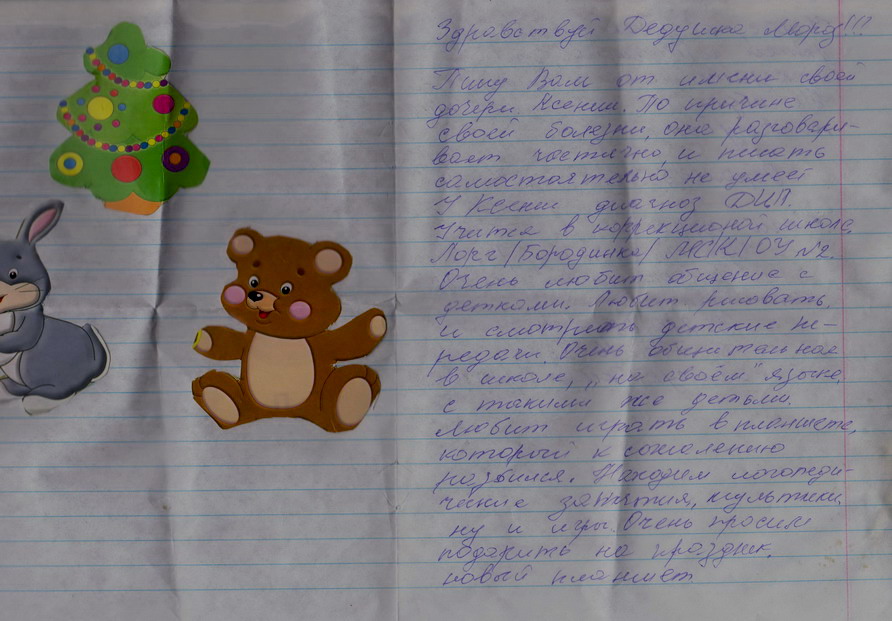 Здравствуй Дедушка Мороз!!!
Пишу Вам от имени своей
дочери Ксении. По причине
своей болезни, она разговари-
вает частично, и писать
самостоятельно не умеет
У Ксении диагноз ДЦП.
Учится в коррекционой школе,
/Бородинка/ МСКОУ №2.
Очень любит общение с
детками. Любит рисовать,
и смотреть детские пе-
редачи. Очень общительная
в школе, "на своём" языке,
с такими же детьми.
Любит играть в планшете,
который к сожалению
разбился. Находим логопеди-
ческие занятия, мультики,
ну и игры. Очень просим
подарить на праздник,
новый планшет